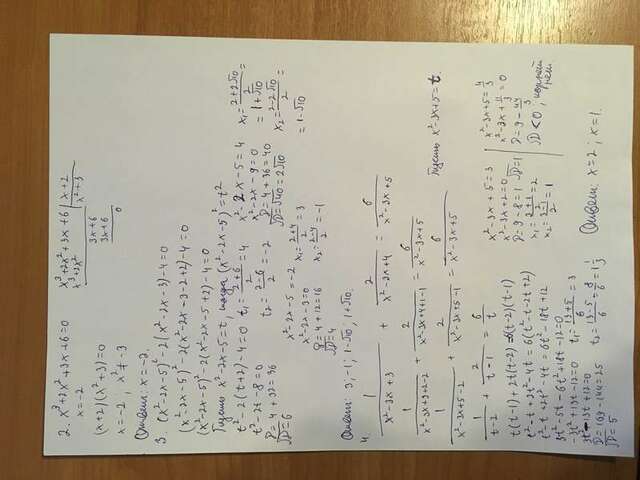 2. x³+2x²+3x+6=0
x=-2
x³+2x²+3x+6 | x+2
x³+2x² | x²+3
3x+6
3x+6
0
(x+2)(x²+3)=0
x=-2, x²≠-3
Ответ: x=-2.
3 (x²-2x-5)²-2(x²-2x-3)-4=0
(x²-2x-5)²-2(x²-2x-3-2+2)-4=0
(x²-2x-5)²-2(x²-2x-5+2)-4=0
Пусть x²-2x-5=t, тогда (x²-2x-5)²=t²
t²-2(t+2)-4=0
t²-2t-8=0
D=4+32=36
√D=6
t₁=2+6/2=4
t₂=2-6/2=-2
x²-2x-5=4
x²-2x-9=0
D=4+36=40
√D=√40=2√10
x₁=2+2√10/2=
=1+√10
x₂=2-2√10/2=
=1-√10
x²-2x-5=-2
x²-2x-3=0
D=4+12=16
√D=4
x₁=2+4/2=3
x₂=2-4/2=-1
Ответ: 3, -1, 1-√10, 1+√10.
4. 1/x²-3x+3 + 2/x²-3x+4 = 6/x²-3x+5
1/x²-3x+3+2-2 + 2/x²-3x+4+1-1 = 6/x²-3x+5
1/x²-3x+5-2 + 2/x²-3x+5-1 = 6/x²-3x+5
Пусть x²-3x+5=t.
1/t-2 + 2/t-1 = 6/t
t(t-1)+2t(t-2)=6(t-2)(t-1)
t²-t+2t²-4t=6(t²-t-2t+2)
t²-t+2t²-4t=6t²-18t+12
3t²-5t-6t²+18t-12=0
-3t²+13t-12=0
3t²-13t+12=0
D=169-144=25
√D=5
t₁=13+5/6=3
t₂=13-5/6=8/6=1 1/3
x²-3x+5=3
x²-3x+2=0
D=9-8=1 √D=1
x₁=3+1/2=2
x₂=3-1/2=1
x²-3x+5=4/3
x²-3x+11/3=0
D=9-44/3
D<0, корней
нет
Ответ: x=2; x=1.